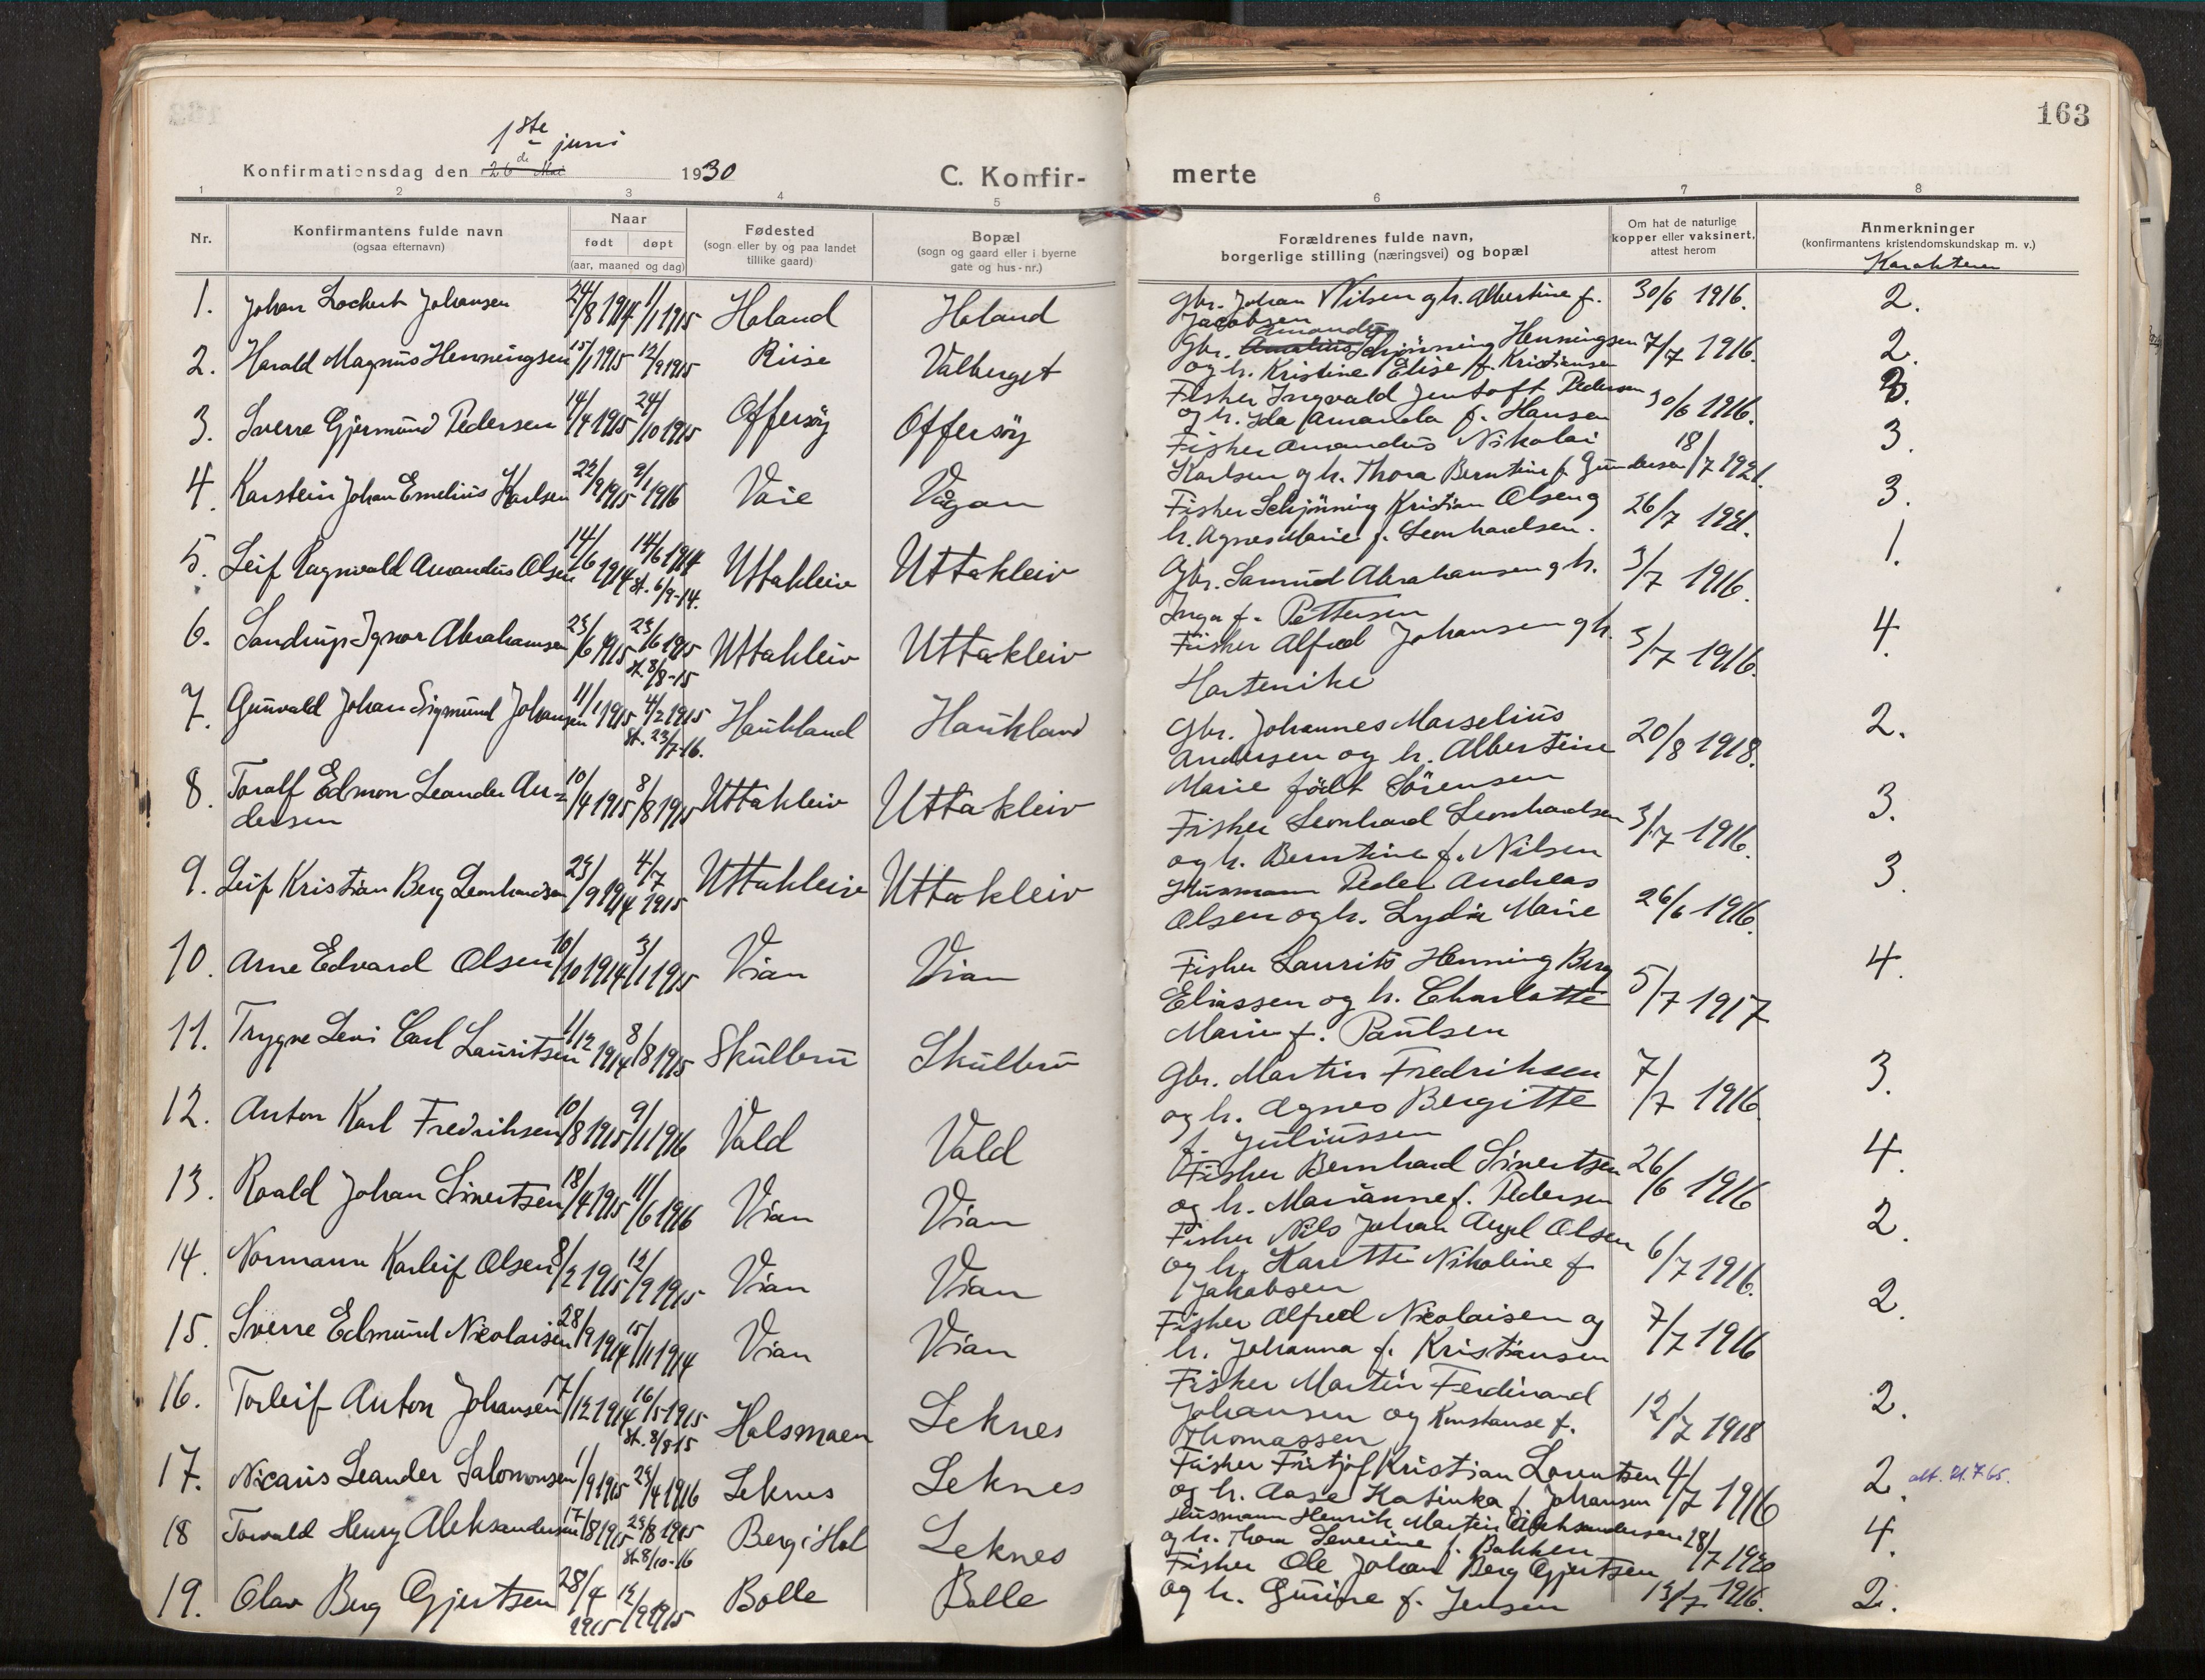 163
1ste juni
Konfirmationsdag den 26de Mai 1930
C. Konfirmerte
1 2 3 4 5 6 7 8
Nr.
Konfirmantens fulde navn
(ogsaa efternavn)
Naar
født døpt
(aar, maaned og dag)
Fødested
(sogn eller by og paa landet
tillike gaard)
Bopæl
(sogn og gaard eller i byerne
gate og hus-nr.)
Forældrenes fulde navn,
borgerlige stilling (næringsvei) og bopæl
Om hat de naturlige
kopper eller vaksinert,
attest herom
Anmerkninger
(konfirmantens kristendomskundskap m. v.)
Karakteren
1. Johan Lockert Johansen 24/8 1914 1/1 1915 Holand Holand Gbr. Johan Nilsen og h. Albertine f. 30/6 1916. 2.
Jacobsen
2. Harald Magnus Henningsen 15/1 1915 12/9 1915 Riise Valberget Gbr. Amandus Schjønning Henningsen 7/7 1916. 2.
og h. Kristine Elise f. Kristiansen
3. Sverre Gjermund Pedersen 14/4 1915 24/10 1915 Offersøy Offersøy Fisker Ingvald Jentoft Pedersen 30/6 1916. 2.
og h. Ida Amanda f. Hansen
4. Karstein Johan Emelius Karlsen 22/9 1915 9/1 1916 Vaie Vågan Fisker Amandus Nikolai 18/7 1921. 3.
Karlsen og h. Thora Berntine f. Gundersen
5. Leif Ragnvald Amandus Olsen 14/6 1914 14/6 1914 Uttakleiv Uttakleiv Fisker Schjønning Kristian Olsen og 26/7 1921. 3.
st. 6/9-14. h. Agnes Marie f. Leonhardsen.
6. Sandrup Ignor Abrahamsen 23/6 1915 23/6 1915 Uttakleiv Uttakleiv Gbr. Samuel Abrahamsen og h. 3/7 1916. 1.
st. 8/8-15 Inga f. Pettersen
7. Gunvald Johan Sigmund Johansen 11/1 1915 4/2 1915 Haukland Haukland Fisker Alfred Johansen og h. 3/7 1916. 4.
st. 23/7-16. Hartenike
8. Toralf Edmon Leander An- 10/4 1915 8/8 1915 Uttakleiv Uttakleiv Gbr. Johannes Marselius 20/8 1918. 2.
dersen Andersen og h. Albertine
Marie født Sørensen
9. Leif Kristian Berg Leonhardsen 23/9 1914 4/7 1915 Uttakleiv Uttakleiv Fisker Leonhard Leonhardsen 3/7 1916. 3.
og h. Berntine f. Nilsen
10. Arne Edvard Olsen 10/10 1914 3/1 1915 Vian Vian Husmann Peder Andreas 26/6 1916. 3.
Olsen og h. Lydia Marie
11. Trygve Levi Carl Lauritsen 11/12 1914 8/8 1915 Skulbru Skulbru Fisker Laurits Henning Berg 5/7 1917 4.
Eliassen og h. Charlotte
Marie f. Paulsen
12. Anton Karl Fredriksen 10/8 1915 9/1 1916 Vold Vold Gbr. Martin Fredriksen 7/7 1916. 3.
og h. Agnes Bergitte
f. Juliussen
13. Roald Johan Sivertsen 18/4 1915 11/6 1916 Vian Vian Fisker Bernhard Sivertsen 26/6 1916 4.
og h. Marianne f. Pedersen
14. Normann Karleif Olsen 8/2 1915 12/9 1915 Vian Vian Fisker Nils Johan Angel Olsen 6/7 1916. 2.
og h. Karette Nikoline f.
Jakobsen
15. Sverre Edmund Nicolaisen 28/9 1914 15/11 1914 Vian Vian Fisker Alfred Nicolaisen og 7/7 1916 2.
h. Johanna f. Kristiansen
16. Torleif Anton Johansen 17/12 1914 16/5 1915 Holsmoen Leknes Fisker Martin Ferdinand 12/7 1918 2.
st. 8/8 15 Johansen og Konstanse f.
Thomassen
17. Nicaris Leander Salomonsen 1/9 1915 24/4 1916 Leknes Leknes Fisker Fritjof Kristian Lorentsen 4/7 1916 2. att. 21.7.65.
og h. Aase Katinka f. Johansen
18 Torvald Henry Aleksandersen 17/8 1915 29/8 1915 Berg i Hol Leknes Husmann Henrik Martin Aleksandersen 28/7 1920 4.
st. 8/10-16 og h. Thora Severine f. Bakken
19. Olav Berg Gjertsen 28/4 1915 12/9 1915 Bolle Bolle Fisker Ole Johan Berg Gjertsen 13/7 1916. 2.
og h. Gurine f. Jensen